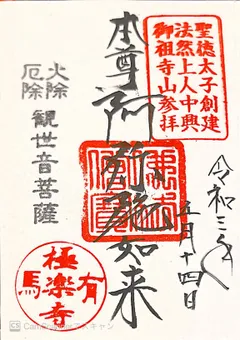 聖徳太子創建
法然上人中興
御祖寺山参拝
本尊 阿弥陀如来
火除
厄除
観世音菩薩
令和三年
五月十四日
極楽寺
有馬
CamScannerでスキャン